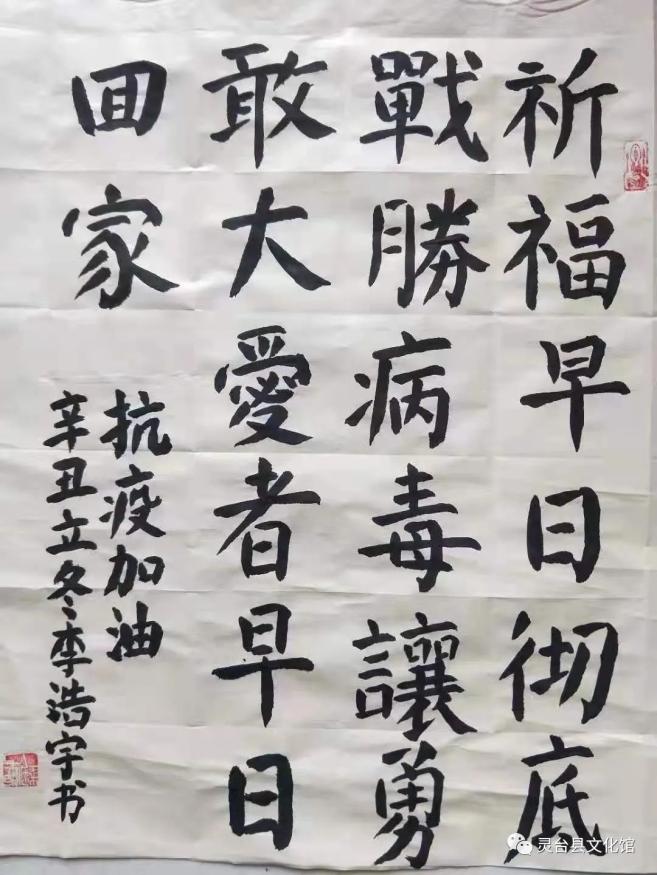 祈福早日彻底
戰勝病毒讓勇
敢大愛者早日
回家
抗疫加油
辛丑立冬李浩宇书
灵台县文化馆